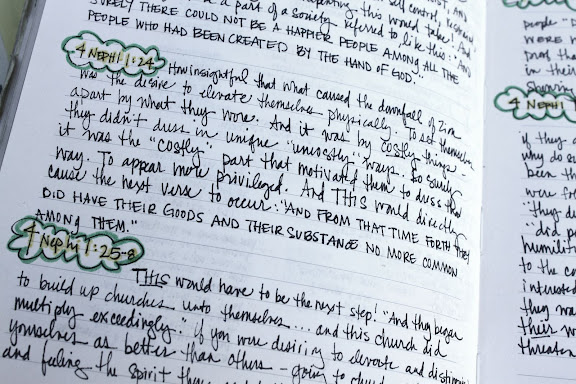 be a part of a society referred to like this: "And
SURELY THERE COULD NOT BE A HAPPIER PEOPLE AMONG ALL THE
PEOPLE WHO HAD BEEN CREATED BY THE HAND OF GOD."
4 NEPHI 1:24 How insightful that what caused the downfall of Zion
was the desire to elevate themselves physically. To set themselves
apart by what they wore. And it was by costly things -
they didn't dress in unique "uncostly" ways. So surely
it was the "costly" part that motivated them to dress that
way. To appear more privileged. And THIS would directly
cause the next verse to occur: "AND FROM THAT TIME FORTH THEY
DID HAVE THEIR GOODS AND THEIR SUBSTANCE NO MORE COMMON
AMONG THEM."
4 Nephi 1:25-8
THIS would have to be the next step! "And they began
to build up churches unto themselves... and this church did
multiply exceedingly." If you were desiring to elevate and
yourselves as better than others - going to
and feeling the Spirit
people
WERE
in their
4 NEPHI
if they
why do
been
were
"they
"did
to the
interested
they
their
threaten